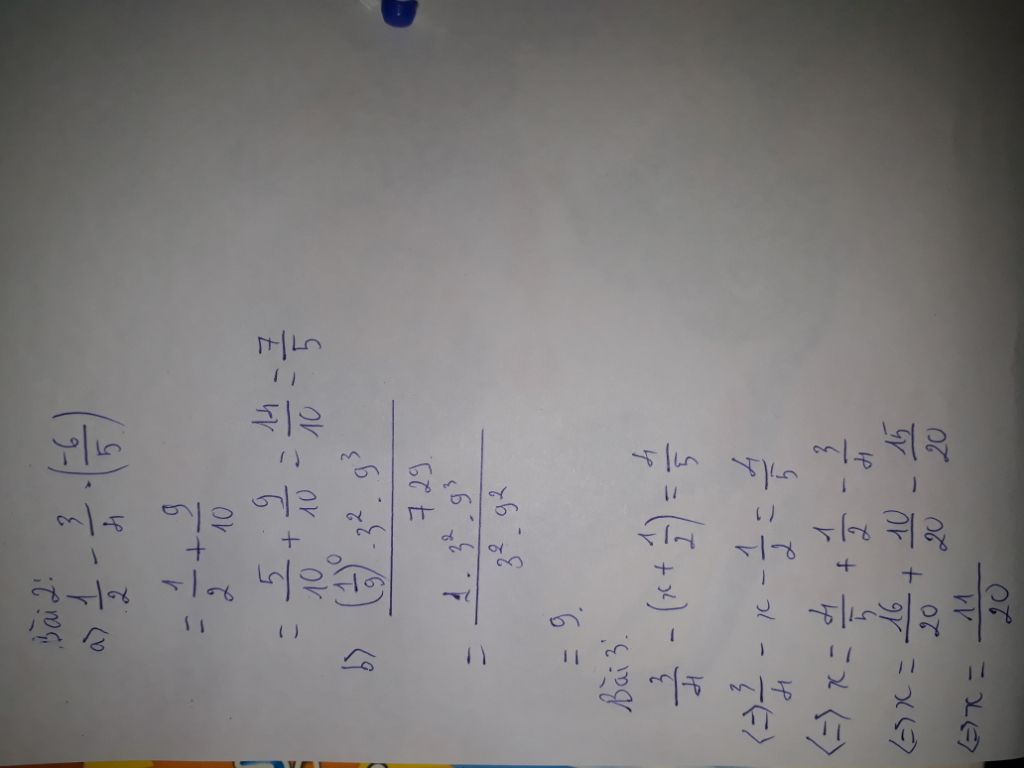 Bài 2:
a) 1/2 - 3/4 . (-6/5)
= 1/2 + 9/10
= 5/10 + 9/10 = 14/10 = 7/5
b) (1/9)^0 . 3^2 . 9^3 / 729
= 1 . 3^2 . 9^3 / 3^2 . 9^2
= 9.
Bài 3:
3/4 - (x + 1/2) = 4/5
<=> 3/4 - x - 1/2 = 4/5
<=> x = 4/5 + 1/2 - 3/4
<=> x = 16/20 + 10/20 - 15/20
<=> x = 11/20